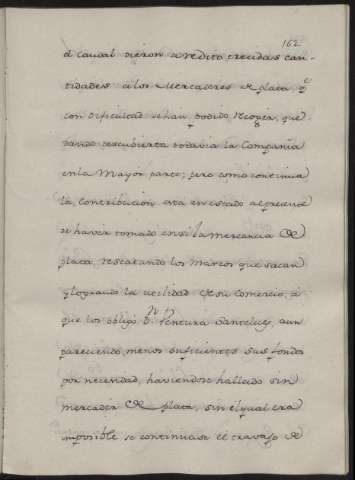 162
el caudal dieron a redito crecidas can-
tidades à los Mercaderes de plata, q.e
con dificultad se han podido recoger, que
dando descubierta todavia la Compañia
en la Mayor parte; pero como continua
la contribucion esta en estado al presente
de haver tomado en si la mercancia de
plata, rescatando los Marcos que sacan
y logrando la utilidad de su Comercio, à
que los obligó D.n Ventura Santelices, aun
pareciendo menos suficientes sus fondos
por necesidad, haviendose hallado sin
mercader de plata, sin el qual era
imposible se continuase el travajo de